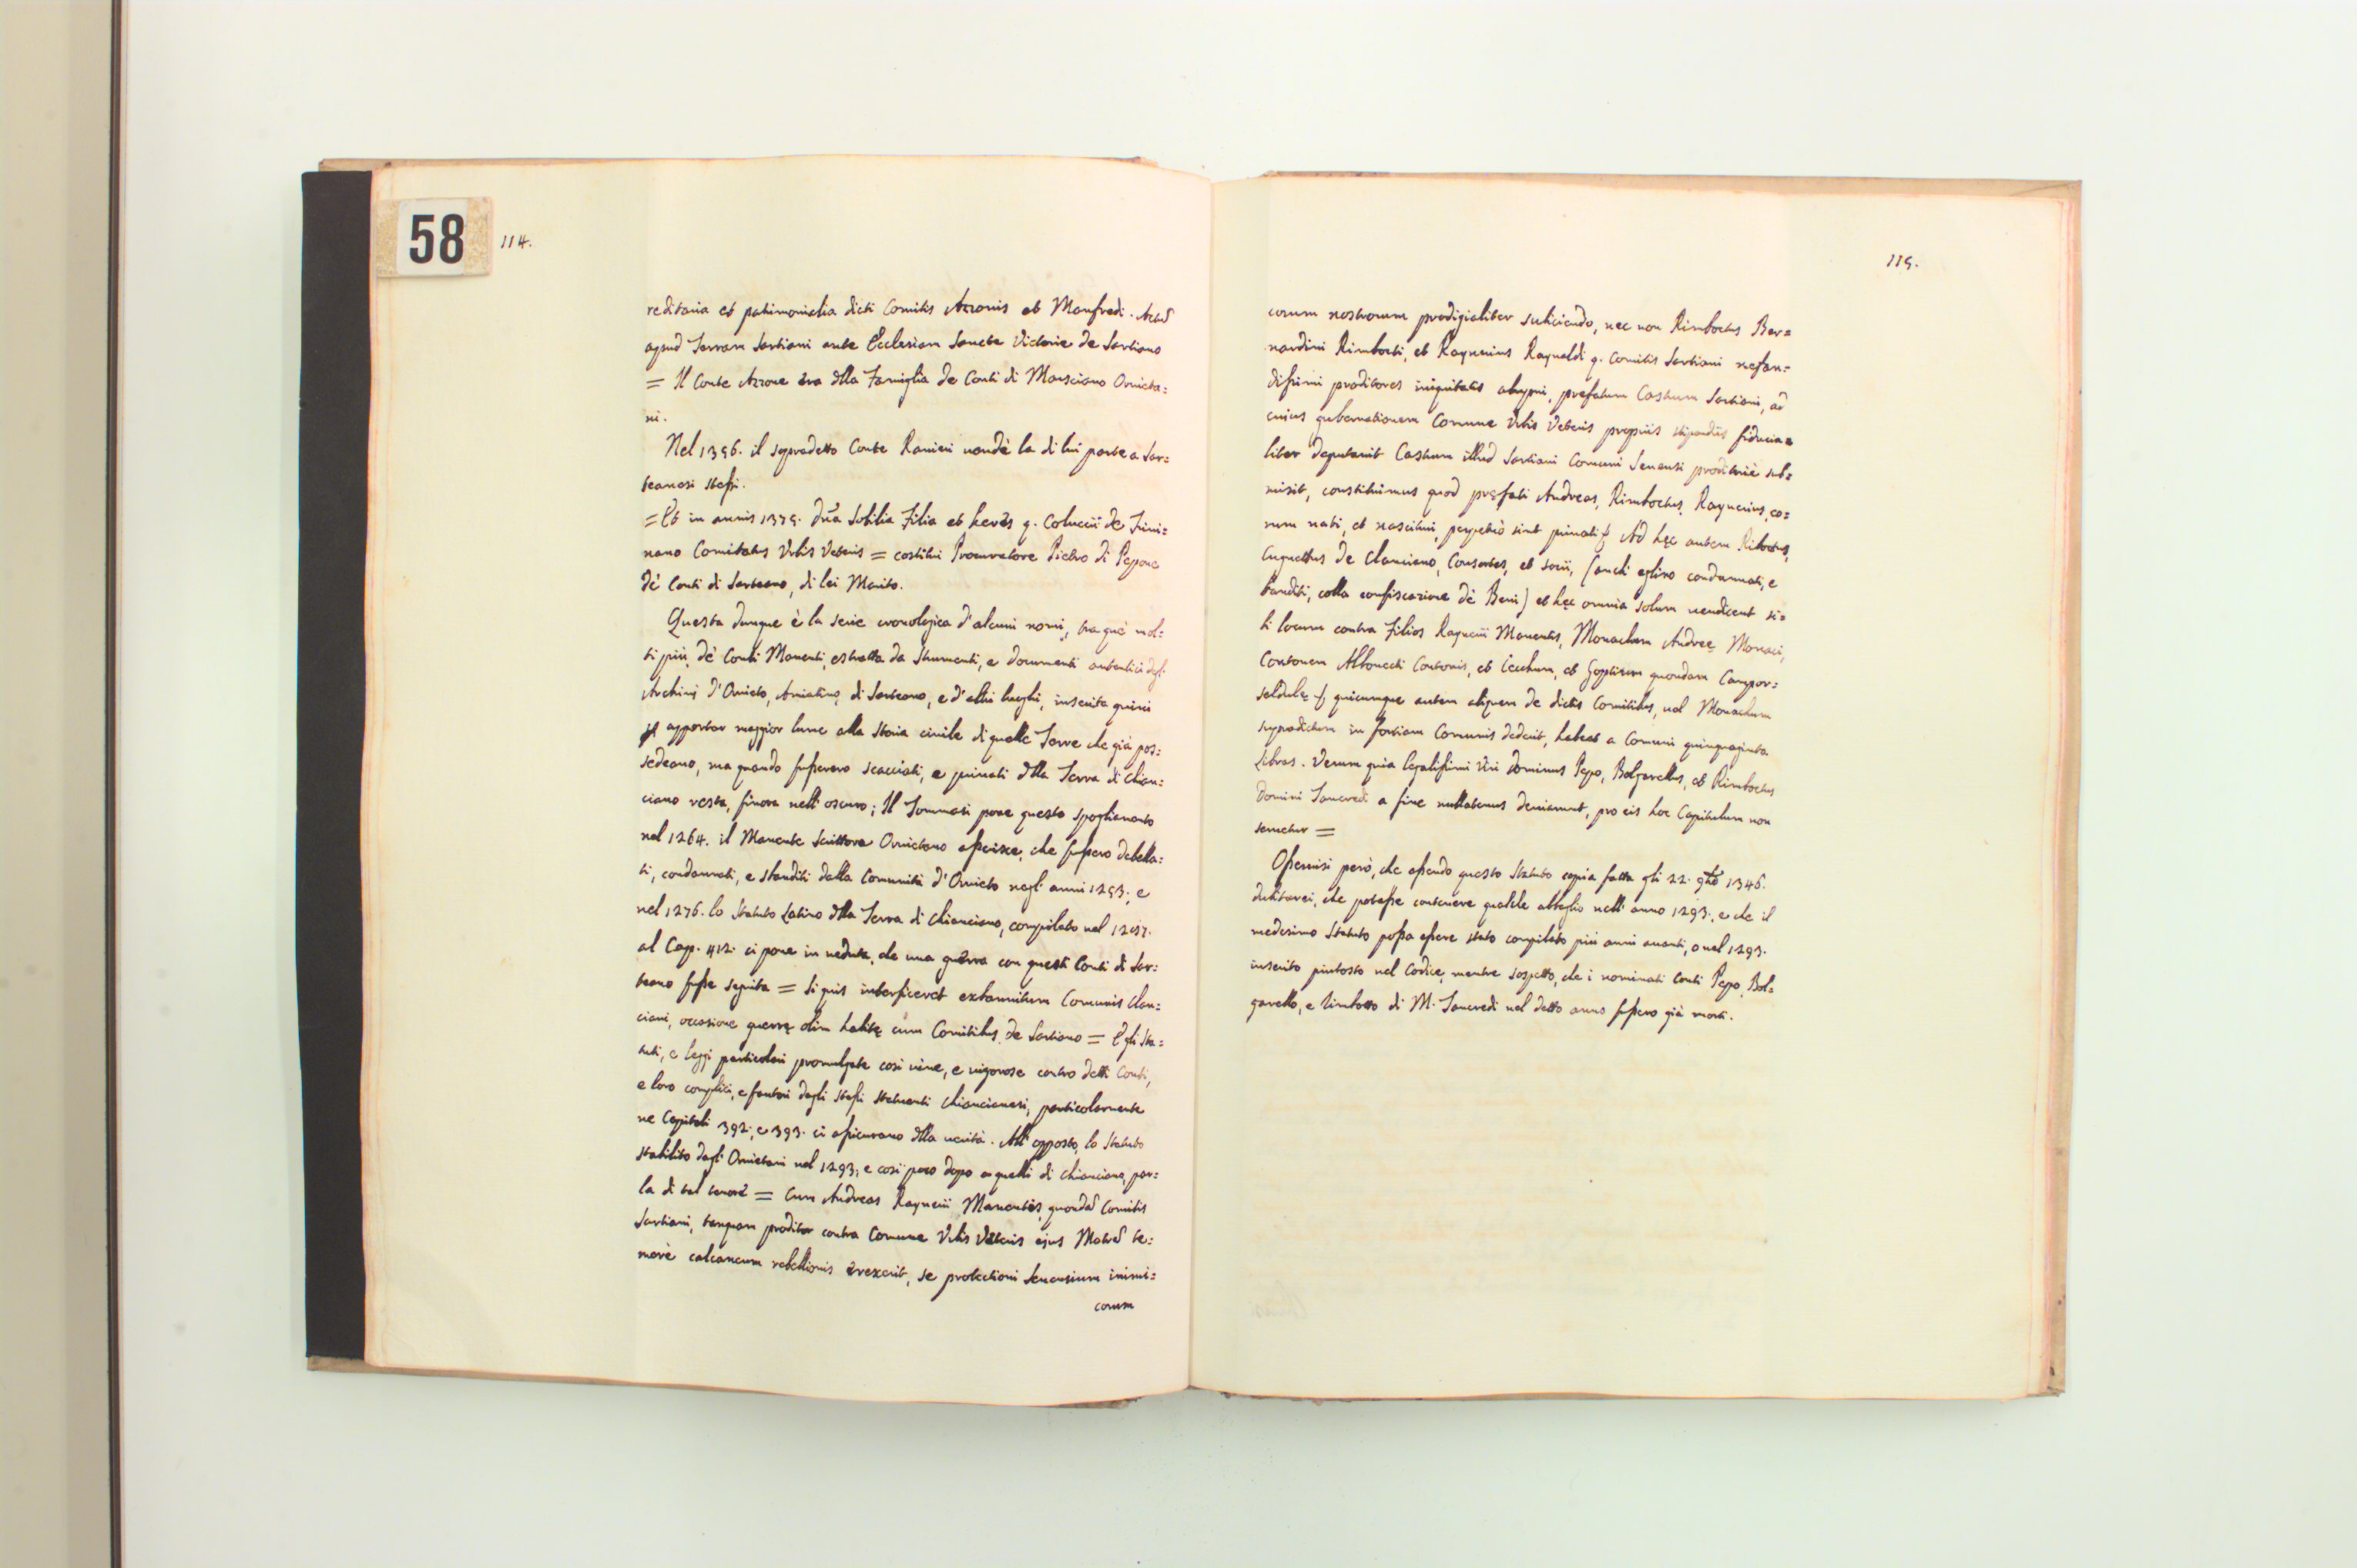 58
114.
reditaria et patrimonialia dicti Comitis Azzonis et Manfredi. Actū
apud Terram Sartiani ante Ecclesiam Sancte Victorie de Sartiano
= Il Conte Azzone era della Famiglia de Conti di Marsciano Orvieta=
ni.
Nel 1356. il sopradetto Conte Ranieri vendè la di lui parte a Sar=
teanesi stessi.
= Et in annis 1375. Dña Sobilia Filia et heres q. Coluccii de Trini=
nano Comitatus Urbis Veteris = costituì Procuratore Pietro di Pepone
dè Conti di Sarteano, di lei Marito.
Questa dunque è la serie cronologica d'alcuni nomi, tra què mol=
ti più, dè Conti Manenti, estratta da Strumenti, e documenti autentici degl'
Archivj d'Orvieto, Amiatino, di Sarteano, e d'altri luoghi, inserita quivi
p apportar maggior lume alla storia civile di quelle Terre che già pos=
sedeano, ma quando fussero scacciati, e privati della Terra di Chian=
ciano resta, finora nell'oscuro; Il Tommasi pone questo spogliamento
nel 1264. il Manente Scrittore Orvietano asserisce, che fussero debella=
ti, condannati, e sbanditi dalla Comunità d'Orvieto negl'anni 1253., e
nel 1276. lo Statuto Latino della Terra di Chianciano, compilato nel 1287.
al Cap. 412. ci pone in veduta, che una guerra con questi Conti di Sar=
teano fusse seguita = Si quis interficeret exbannitum Comunis Clan=
ciani, occasione guerrę olim habitę cum Comitibus de Sartiano = E gli Sta=
tuti, e leggi particolari promulgate così vive, e vigorose contro detti Conti,
e loro complici, e fautori dagli stessi statuenti Chiancianesi, particolarmente
ne Capitoli 392., e 393. ci assicurano della verità. All'opposto, lo Statuto
stabilito dagl'Orvietani nel 1293., e così poco dopo a quelli di Chianciano, par=
la di tal tenore = Cum Andreas Raynerii Manentis, quondā Comitis
Sartiani, tanquam proditor contra Comune Urbis Veteris ejus Matrē te=
merè calcaneum rebellionis erexerit, se protectioni Senensium inimi=
corum
115.
corum nostrorum prodigialiter subiciendo, nec non Rimboctus Ber=
nardini Rimbocti, et Raynerius Raynaldi q. Comitis Sartiani nefan=
dissimi proditores iniquitatis alumpni, prefatum Castrum Sartiani, ad
cuius gubernationem Comune Urbis Veteris propriis stipendiis fiducia=
liter deputavit Castrum illud Sartiani Comuni Senensi proditoriè sub=
misit, constituimus quod pręfati Andreas, Rimboctus, Raynerius, eo=
rum nati, et nascituri, perpetuò sint privati &c Ad hęc autem Riboctus,
Cugnettus de Clanciano, Consortes, et socii, (anch'eglino condannati, e
banditi, colla confiscazione dè Beni) et hęc omnia solum vendicent si=
bi locum contra Filios Raynerii Manentis, Monachum Andreę Monaci,
Contonem Albonecti Contonis, et Cecchum, et quondam Campor=
seldulę &c quicumque autem aliquem de dictis Comitibus, vel Monachum
supradictum in fortiam Comunis dederit, habeat a Comuni quinquaginta
Libras. Verum quia legalissimi Viri Dominus Pepo, Bolgarellus, et Rimboctus
Domini Tancredi a fine nullatenus deviarunt, pro eis hoc Capitulum non
servetur =
Osservisi però, che essendo questo Statuto copia fatta gli 22. 9bre 1346.
dubitarei, che potesse contenere qualche abbaglio nell'anno 1293., e che il
medesimo Statuto possa essere stato compilato più anni avanti, o nel 1293.
inserito piutosto nel Codice, mentre sospetto, che i nominati Conti Pepo, Bol=
garello, e Rimbotto di M. Tancredi nel detto anno fussero già morti.